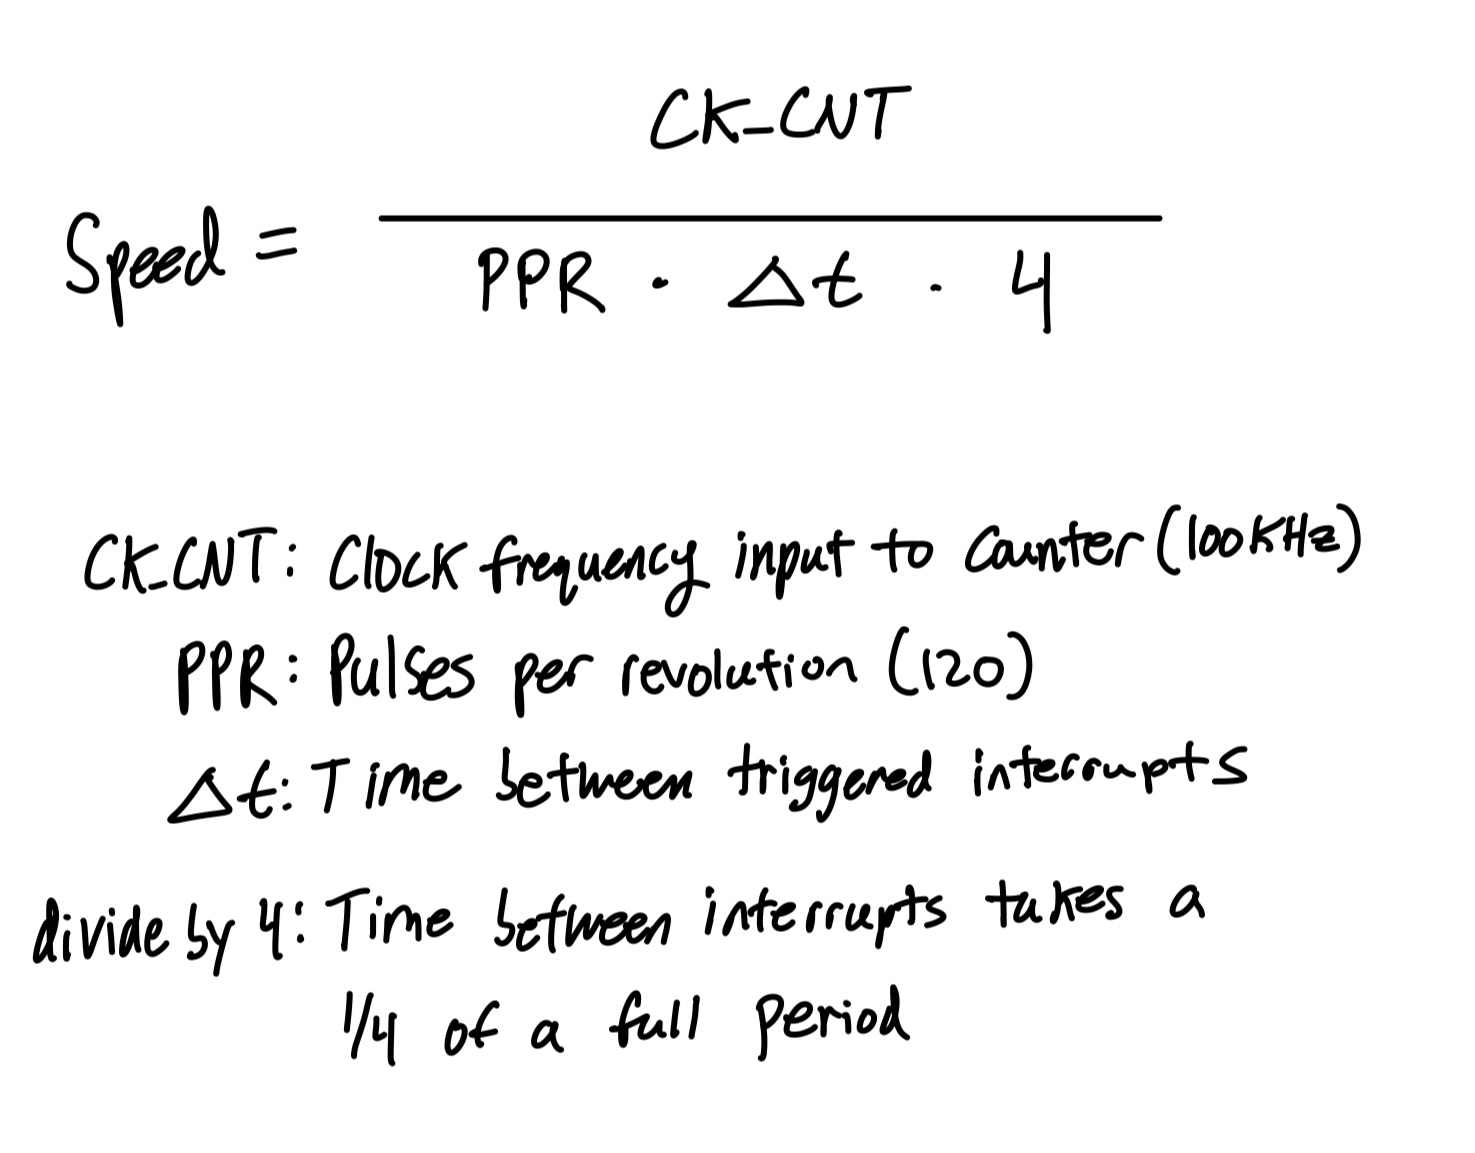 CK_CNT
Speed =
PPR · Δt · 4
CK_CNT: Clock frequency input to Counter (100KHz)
PPR: Pulses per revolution (120)
Δt: Time between triggered interrupts
divide by 4: Time between interrupts takes a
1/4 of a full period